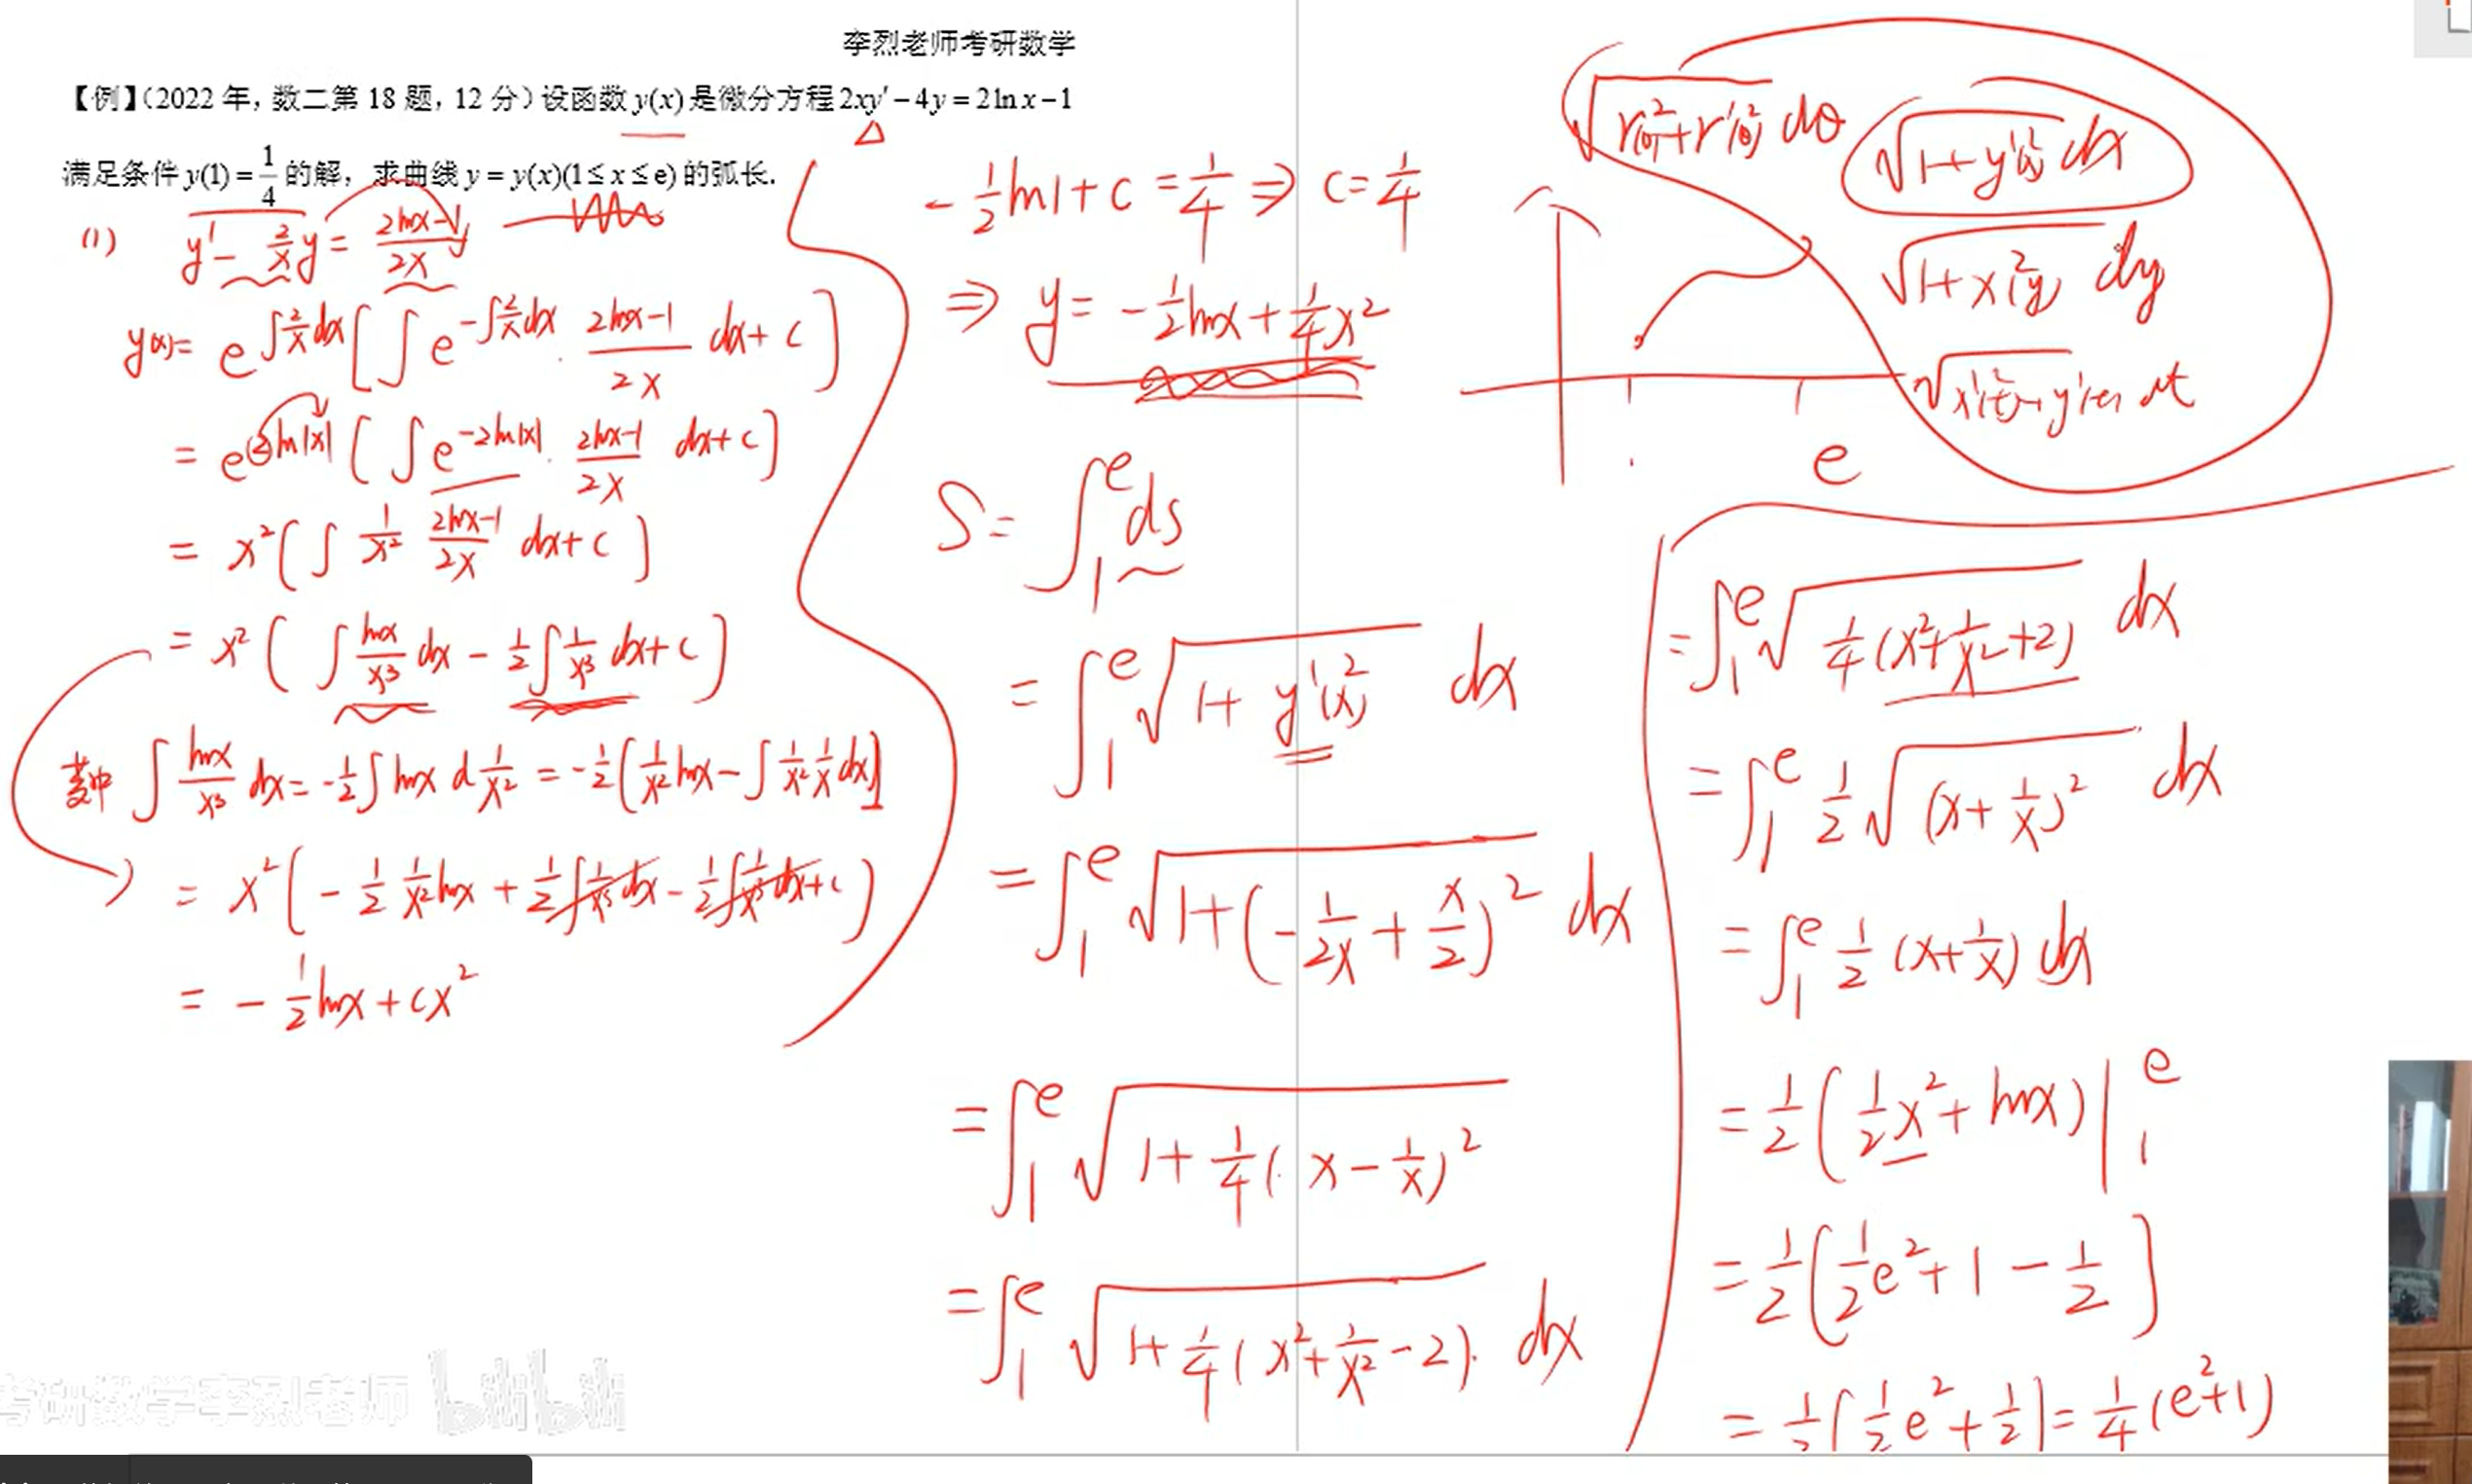 李烈老师考研数学
【例】（2022 年，数二第 18 题，12 分）设函数 y(x) 是微分方程 2xy′ − 4y = 2ln x − 1
满足条件 y(1) = 1/4 的解，求曲线 y = y(x)(1 ≤ x ≤ e) 的弧长.
(1) y' - 2/x y = (2lnx-1)/(2x)
y(x) = e^{∫2/x dx} [∫ e^{-∫2/x dx} · (2lnx-1)/(2x) dx + C]
= e^{2ln|x|} [∫ e^{-2ln|x|} · (2lnx-1)/(2x) dx + C]
= x² (∫ 1/x² (2lnx-1)/(2x) dx + C)
= x² (∫ lnx/x³ dx - 1/2 ∫ 1/x³ dx + C)
其中 ∫ lnx/x³ dx = -1/2 ∫ lnx d 1/x² = -1/2 [1/x² lnx - ∫ 1/x² 1/x dx]
= x² (-1/2 1/x² lnx + 1/2 ∫ 1/x³ dx - 1/2 ∫ 1/x³ dx + C)
= -1/2 lnx + Cx²
-1/2 ln1 + C = 1/4 ⇒ C = 1/4
⇒ y = -1/2 lnx + 1/4 x²
S = ∫₁^e ds
= ∫₁^e √(1 + y'²(x)) dx
= ∫₁^e √(1 + (-1/(2x) + x/2)²) dx
= ∫₁^e √(1 + 1/4 (x - 1/x)²)
= ∫₁^e √(1 + 1/4 (x² + 1/x² - 2)) dx
√(r²(θ) + r'²(θ)) dθ
√(1 + y'²(x)) dx
√(1 + x'²(y)) dy
√(x'²(t) + y'²(t)) dt
e
= ∫₁^e √(1/4 (x² + 1/x² + 2)) dx
= ∫₁^e 1/2 √((x + 1/x)²) dx
= ∫₁^e 1/2 (x + 1/x) dx
= 1/2 (1/2 x² + lnx) |₁^e
= 1/2 [1/2 e² + 1 - 1/2]
= 1/2 [1/2 e² + 1/2] = 1/4 (e² + 1)
考研数学李烈老师 bilibili